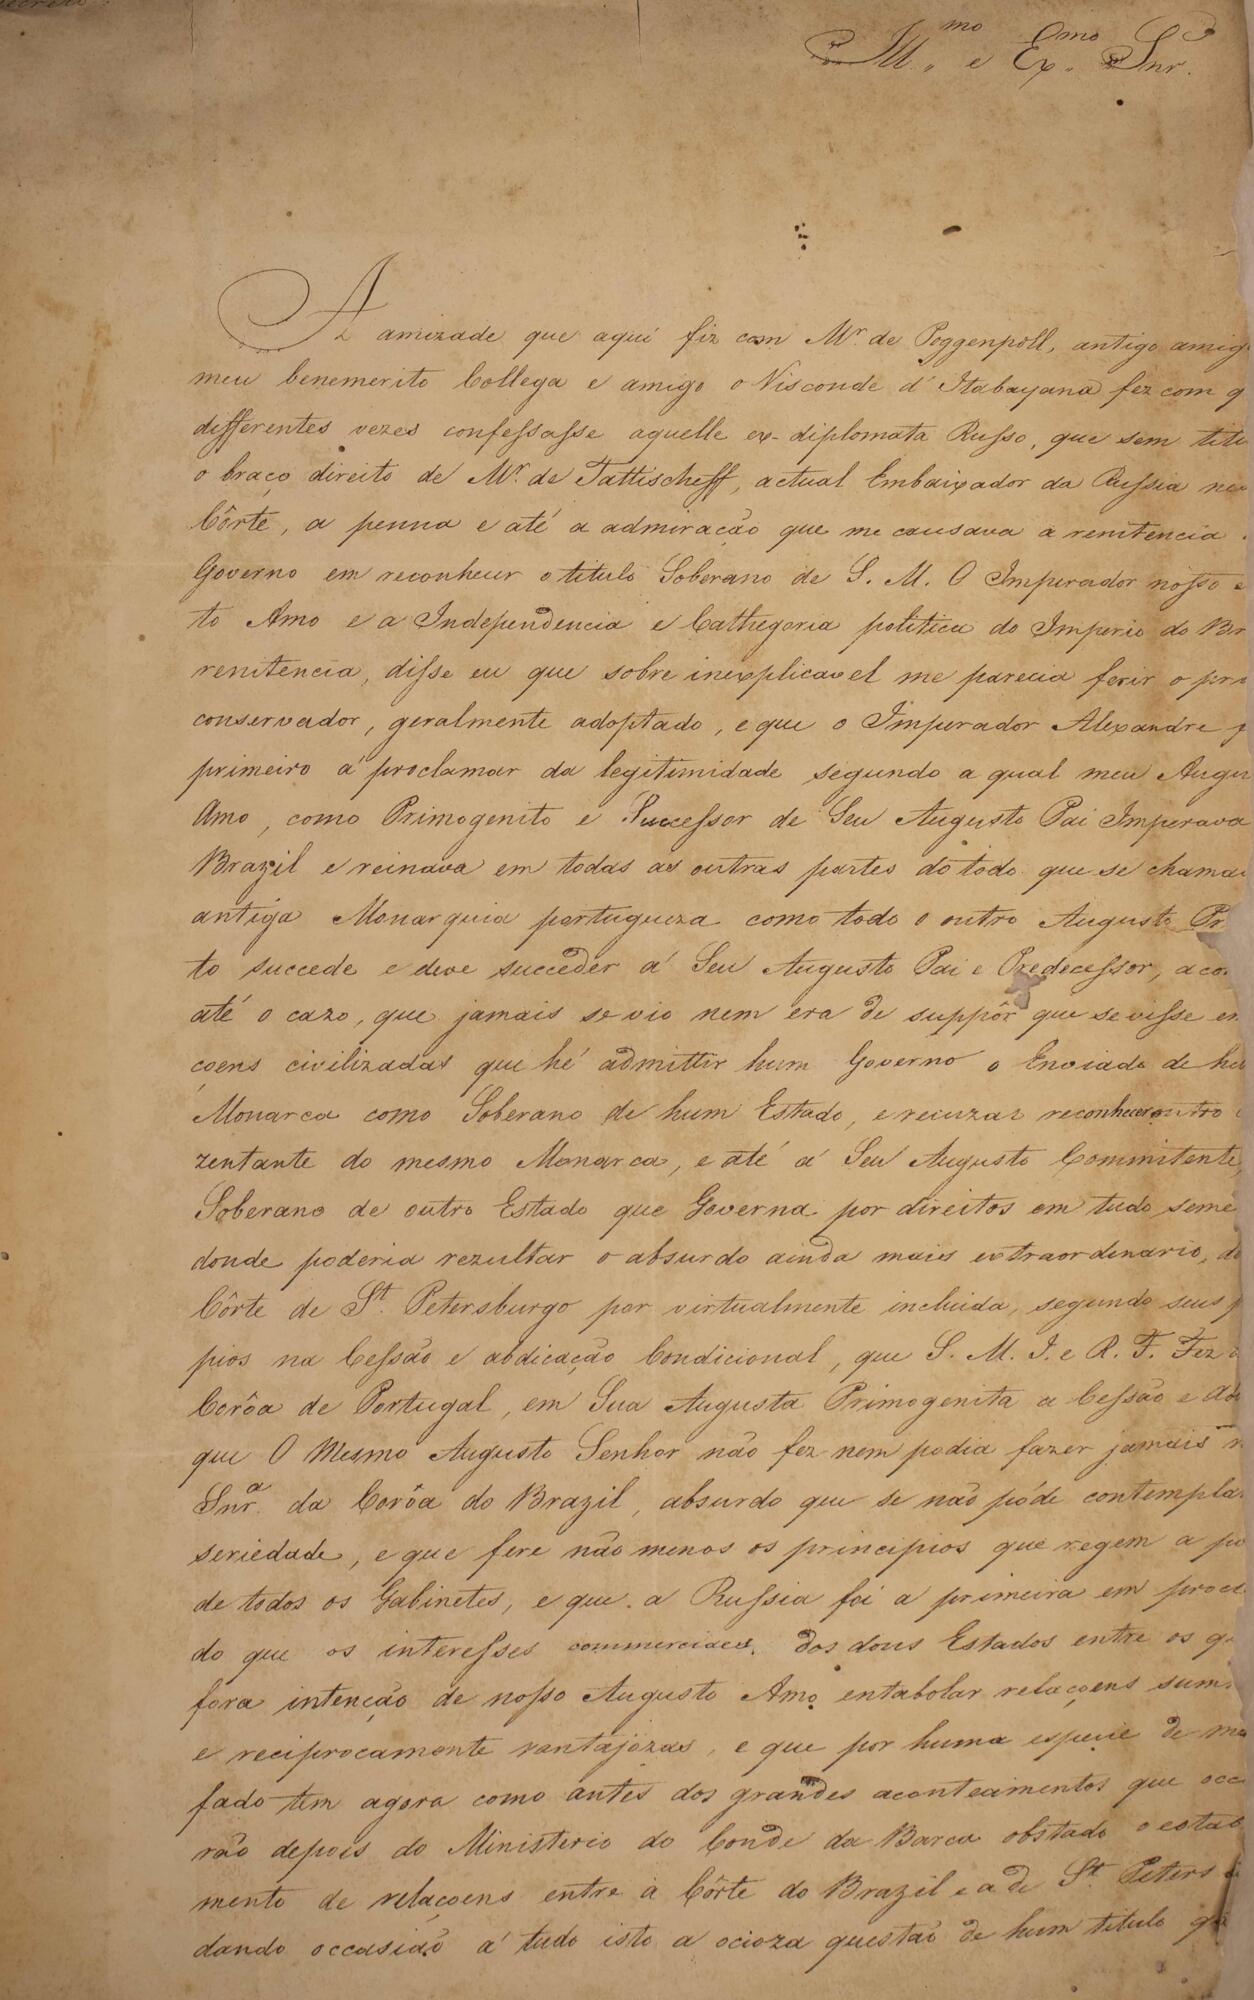 Ill.mo e Ex.mo Snr.
A amizade que aqui fiz com Mr. de Poggenpoll, antigo amig
meu benemerito Collega e amigo o Visconde d'Itabayana fez com q
differentes vezes confessasse aquelle ex-diplomata Russo, que sem titu
o braço direito de Mr. de Tattischeff, actual Embaixador da Russia ne
Côrte, a penna e até a admiração que me causava a renitencia
Governo em reconhecer o titulo Soberano de S. M. O Imperador nosso
to Amo e a Independencia e Cathegoria politica do Imperio do Br
renitencia, disse eu que sobre inexplicavel me parecia ferir o pri
conservador, geralmente adoptado, e que o Imperador Alexandre f
primeiro á proclamar da legitimidade segundo a qual meu Augu
Amo, como Primogenito e Successor de Seu Augusto Pai Imperava
Brazil e reinava em todas as outras partes do todo que se chama
antiga Monarquia portugueza como todo o outro Augusto Pr
to succede e deve succeder á Seu Augusto Pai e Predecessor, aco
até o cazo, que jamais se vio nem era de suppôr que se visse en
çoens civilizadas que hé admittir hum Governo o Enviado de hu
Monarca como Soberano de hum Estado, e recuzar reconhecer outro
zentante do mesmo Monarca, e até á Seu Augusto Committente,
Soberano de outro Estado que Governa por direitos em tudo seme
donde poderia rezultar o absurdo ainda mais extraordinario, de
Côrte de St. Petersburgo por virtualmente incluida, segundo seus p
pios na Cessão e abdicação Condicional, que S. M. I. e R. F. Fez
Corôa de Portugal, em Sua Augusta Primogenita a Cessão e Ab
que O Mesmo Augusto Senhor não fez nem podia fazer jamais n
Snr.a da Corôa do Brazil, absurdo que se não póde contempla
seriedade, e que fere não menos os principios que regem a po
de todos os Gabinetes, e que a Russia foi a primeira em procla
do que os interesses commerciaes dos dous Estados entre os q
fora intenção de nosso Augusto Amo entabolar relaçoens sum
e reciprocamente vantajózas, e que por huma especie de ma
fado tem agora como antes dos grandes acontecimentos que occ
rão depois do Ministerio do Conde da Barca obstado o estab
mento de relaçoens entre a Côrte do Brazil e a de St. Peters
dando occasião á tudo isto a ocioza questão de hum titulo q